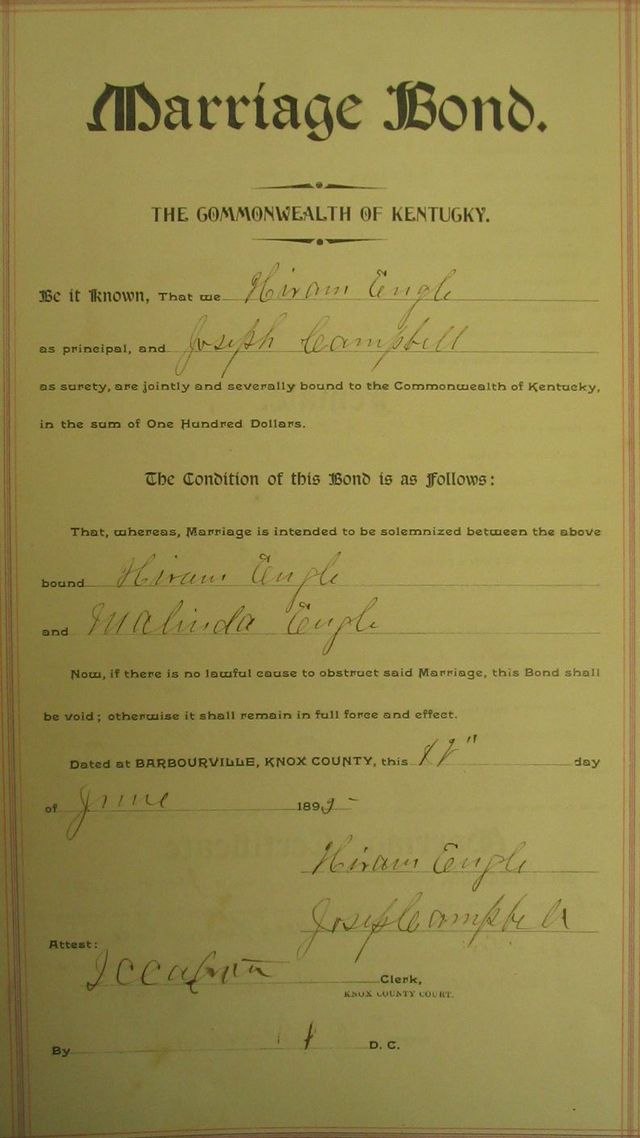 Marriage Bond.
THE COMMONWEALTH OF KENTUCKY.
Be it Known, That we Hiram Engle
as principal, and Joseph Campbell
as surety, are jointly and severally bound to the Commonwealth of Kentucky,
in the sum of One Hundred Dollars.
The Condition of this Bond is as Follows:
That, whereas, Marriage is intended to be solemnized between the above
bound Hiram Engle
and Malinda Engle
Now, if there is no lawful cause to obstruct said Marriage, this Bond shall
be void; otherwise it shall remain in full force and effect.
Dated at BARBOURVILLE, KNOX COUNTY, this 12" day
of June 189
Hiram Engle
Joseph Campbell
Attest:
Clerk,
KNOX COUNTY COURT.
By D. C.